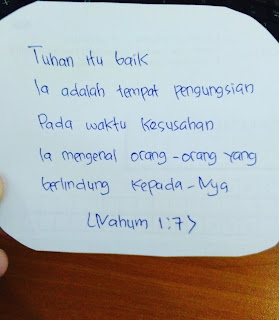 Tuhan itu baik
Ia adalah tempat pengungsian
Pada waktu kesusahan
Ia mengenal orang-orang yang
berlindung kepada-Nya
<Nahum 1:7>